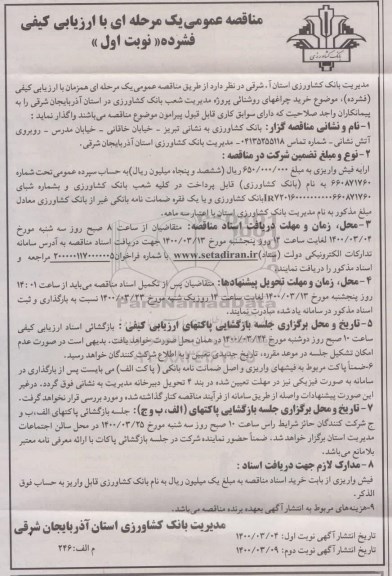 مناقصه عمومی یک مرحله ای با ارزیابی کیفی
فشرده« نوبت اول »
بانک کشاورزی
مدیریت بانک کشاورزی استان آ.شرقی در نظر دارد از طریق مناقصه عمومی یک مرحله ای همزمان با ارزیابی کیفی
(فشرده)، موضوع خرید چراغهای روشنائی پروژه مدیریت شعب بانک کشاورزی در استان آذربایجان شرقی را به
پیمانکاران واجد صلاحیت که دارای سوابق کاری قابل قبول پیرامون موضوع مناقصه می‌باشند واگذار نماید :
۱-نام و نشانی مناقصه گزار: بانک کشاورزی به نشانی تبریز - خیابان خاقانی - خیابان مدرس - روبروی
آتش نشانی - شماره تماس ۰۴۱۳۵۲۵۱۱۸- مدیریت بانک کشاورزی استان آذربایجان شرقی.
۲-نوع و مبلغ تضمین شرکت در مناقصه :
ارایه فیش واریزی به مبلغ ۶۵۰/۰۰۰/۰۰۰ ریال (ششصد و پنجاه میلیون ریال)به حساب سپرده عمومی تحت شماره
۶۶۰۸۷۱۷۶۰ به نام (بانک کشاورزی) قابل پرداخت در کلیه شعب بانک کشاورزی و بشماره شبای
بانک کشاورزی و یا یک فقره ضمانت نامه بانکی غیر از بانک کشاورزی معادل
مبلغ مذکور به نام مدیریت بانک کشاورزی استان با اعتبار سه ماهه.
۳-محل، زمان و مهلت دریافت اسناد مناقصه: متقاضیان از ساعت ۸ صبح روز سه شنبه مورخ
۱۴۰۰/۰۳/۰۴ لغایت ساعت ۱۴ روز پنجشنبه مورخ ۱۴۰۰/۰۳/۱۳ جهت دریافت اسناد مناقصه به آدرس سامانه
تدارکات الکترونیکی دولت (ستاد)www.setadiran.ir با شماره فراخوان مراجعه و
اسناد مذکور را دریافت نمایند.
۴-محل، زمان و مهلت تحویل پیشنهادها: متقاضیان پس از تکمیل اسناد مناقصه می‌باید از ساعت ۱۴:۰۱
روز پنجشنبه مورخ ۱۴۰۰/۰۳/۱۳ لغایت ساعت ۱۴ روز یک شنبه مورخ ۱۴۰۰/۰۳/۲۳ نسبت به بارگذاری و ثبت
اسناد مذکور در سامانه یاد شده مبادرت نمایند.
۵-تاریخ و محل برگزاری جلسه بازگشایی پاکتهای ارزیابی کیفی : بازگشائی اسناد ارزیابی کیفی
ساعت ۱۰ صبح روز دوشنبه مورخ ۱۴۰۰/۰۳/۲۴ در همان محل صورت خواهد یافت. بدیهی است در صورت عدم
امکان تشکیل جلسه در موعد مقرر، تاریخ جدیدی تعیین و به اطلاع شرکت کنندگان خواهد رسید.
۶-ضمناً پاکت مربوط به فیشهای واریزی و اصل ضمانت نامه بانکی ( پاکت الف) می بایست پس از بارگذاری در
سامانه به صورت فیزیکی نیز در مهلت تعیین شده در بند ۴ تحویل دبیرخانه مدیریت به نشانی فوق گردد. درغیر
این صورت پیشنهادات واصله از طریق سامانه از فرآیند مناقصه کنار گذاشته شده و مورد بررسی قرار نخواهد گرفت.
۷- تاریخ و محل برگزاری جلسه بازگشایی پاکتهای (الف، ب و ج): جلسه بازگشائی پاکتهای الف، ب و
ج شرکت کنندگان حائز شرایط راس ساعت ۱۰ صبح روز سه شنبه مورخ ۱۴۰۰/۰۳/۲۵ در محل سالن اجتماعات
مدیریت استان برگزار خواهد شد. ضمناً حضور نماینده شرکت در جلسه بازگشائی پاکات با ارائه معرفی نامه معتبر
بلامانع می‌باشد.
۸-مدارک لازم جهت دریافت اسناد :
فیش واریزی از بابت خرید اسناد مناقصه به مبلغ یک میلیون ریال به نام بانک کشاورزی قابل واریز به حساب فوق
الذکر.
۹-هزینه‌های مربوط به انتشار آگهی بعهده برنده مناقصه می‌باشد.
مدیریت بانک کشاورزی استان آذربایجان شرقی
تاریخ انتشار آگهی نوبت اول: ۱۴۰۰/۰۳/۰۴
تاریخ انتشار آگهی نوبت دوم: ۱۴۰۰/۰۳/۰۹
م الف:۲۴۶
ParsNamadData